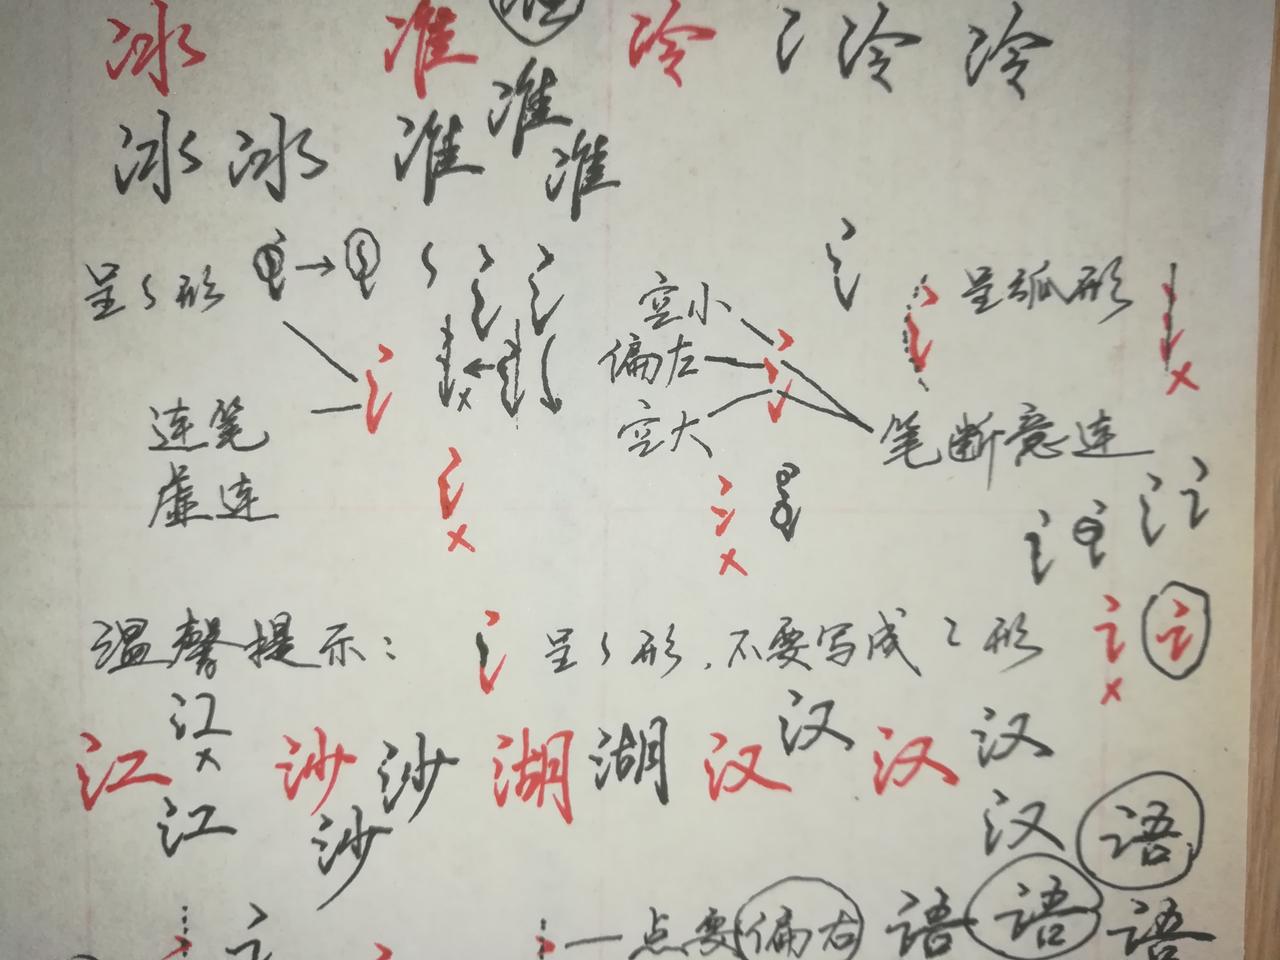 冰 准 冷 冫 冷 冷
冰 冰 准 准 准
呈S形
空小
偏左
空大
呈弧形
连笔
虚连
笔断意连
温馨提示：氵呈S形，不要写成Z形
江 江 沙 沙 湖 湖 汉 汉 汉 汉
江 沙 汉 语
点要偏右 语 语 语